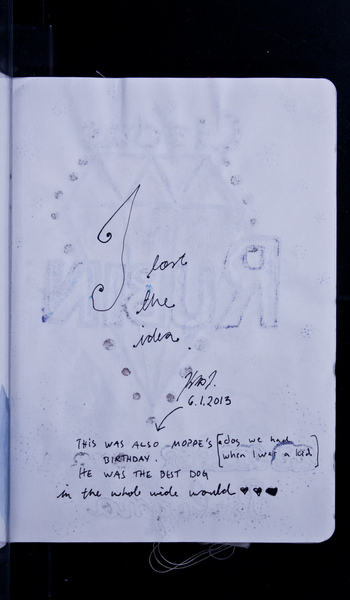 I lost
the
idea.
6.1.2013
THIS WAS ALSO MOPPE'S [a dog we had
BIRTHDAY. when I was a kid]
HE WAS THE BEST DOG
in the whole wide would ♥ ♥ ♥